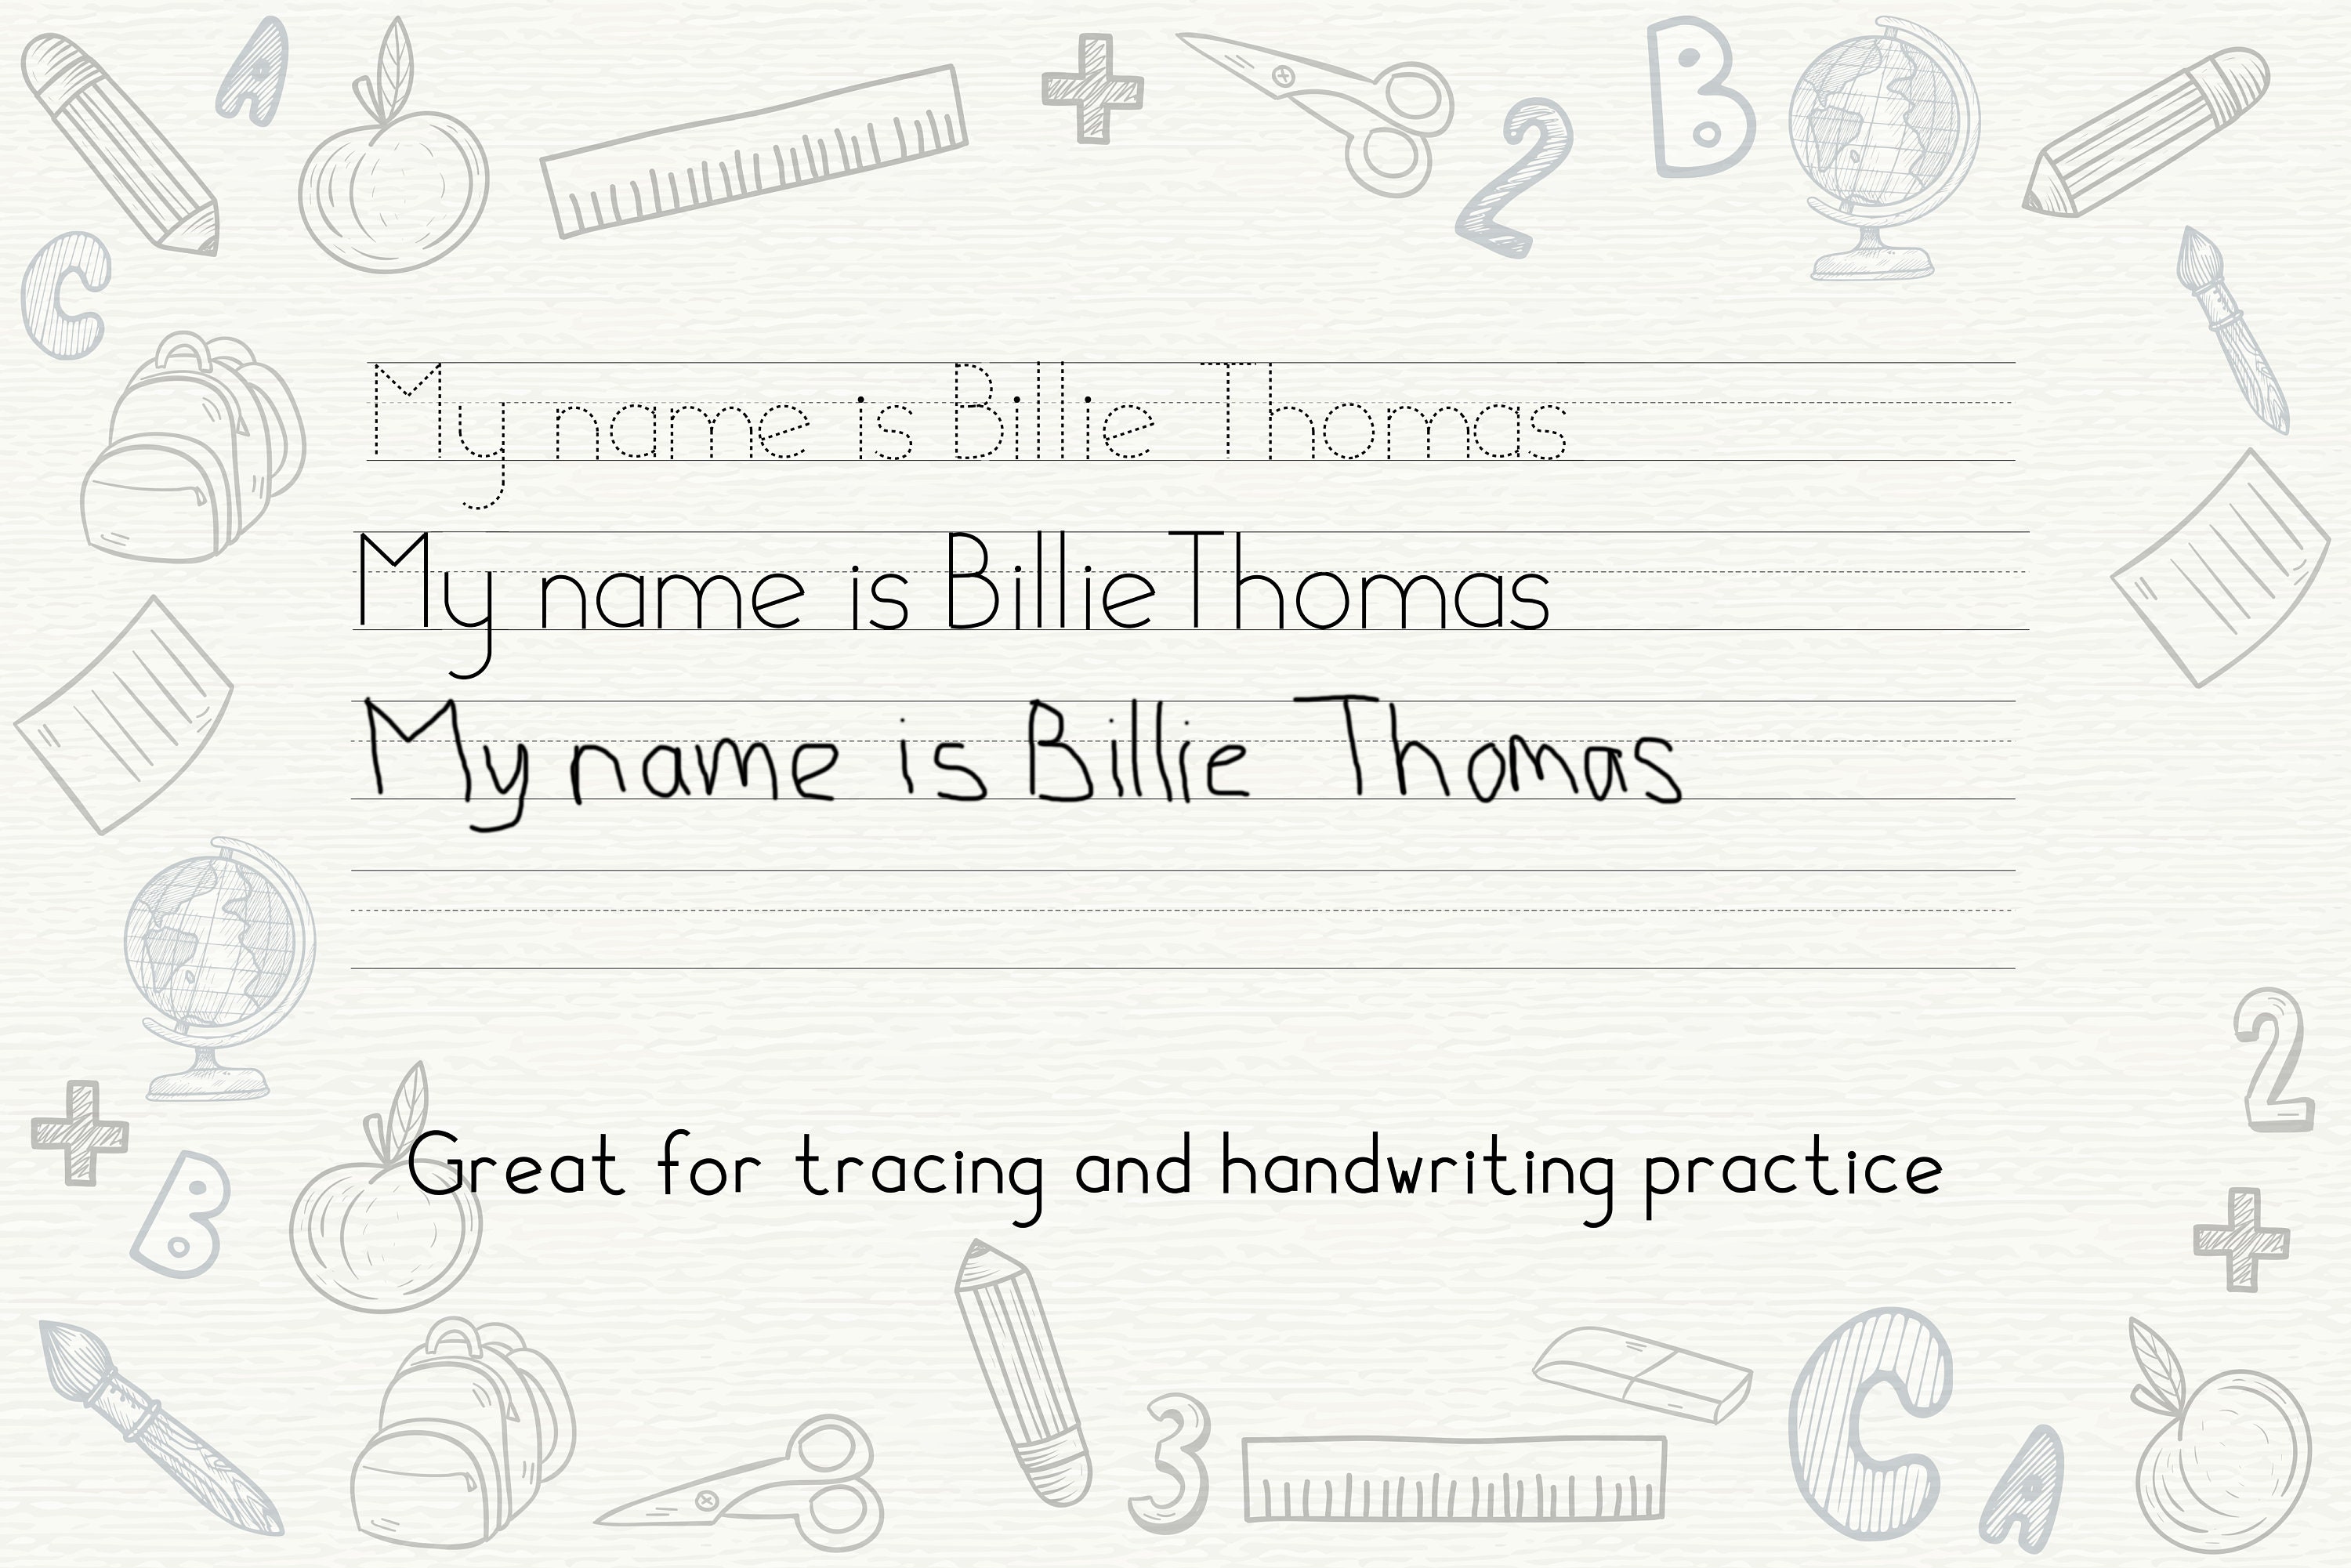 A
2
B
C
My name is Billie Thomas
My name is BillieThomas
My name is Billie Thomas
2
B
Great for tracing and handwriting practice
3
C
A